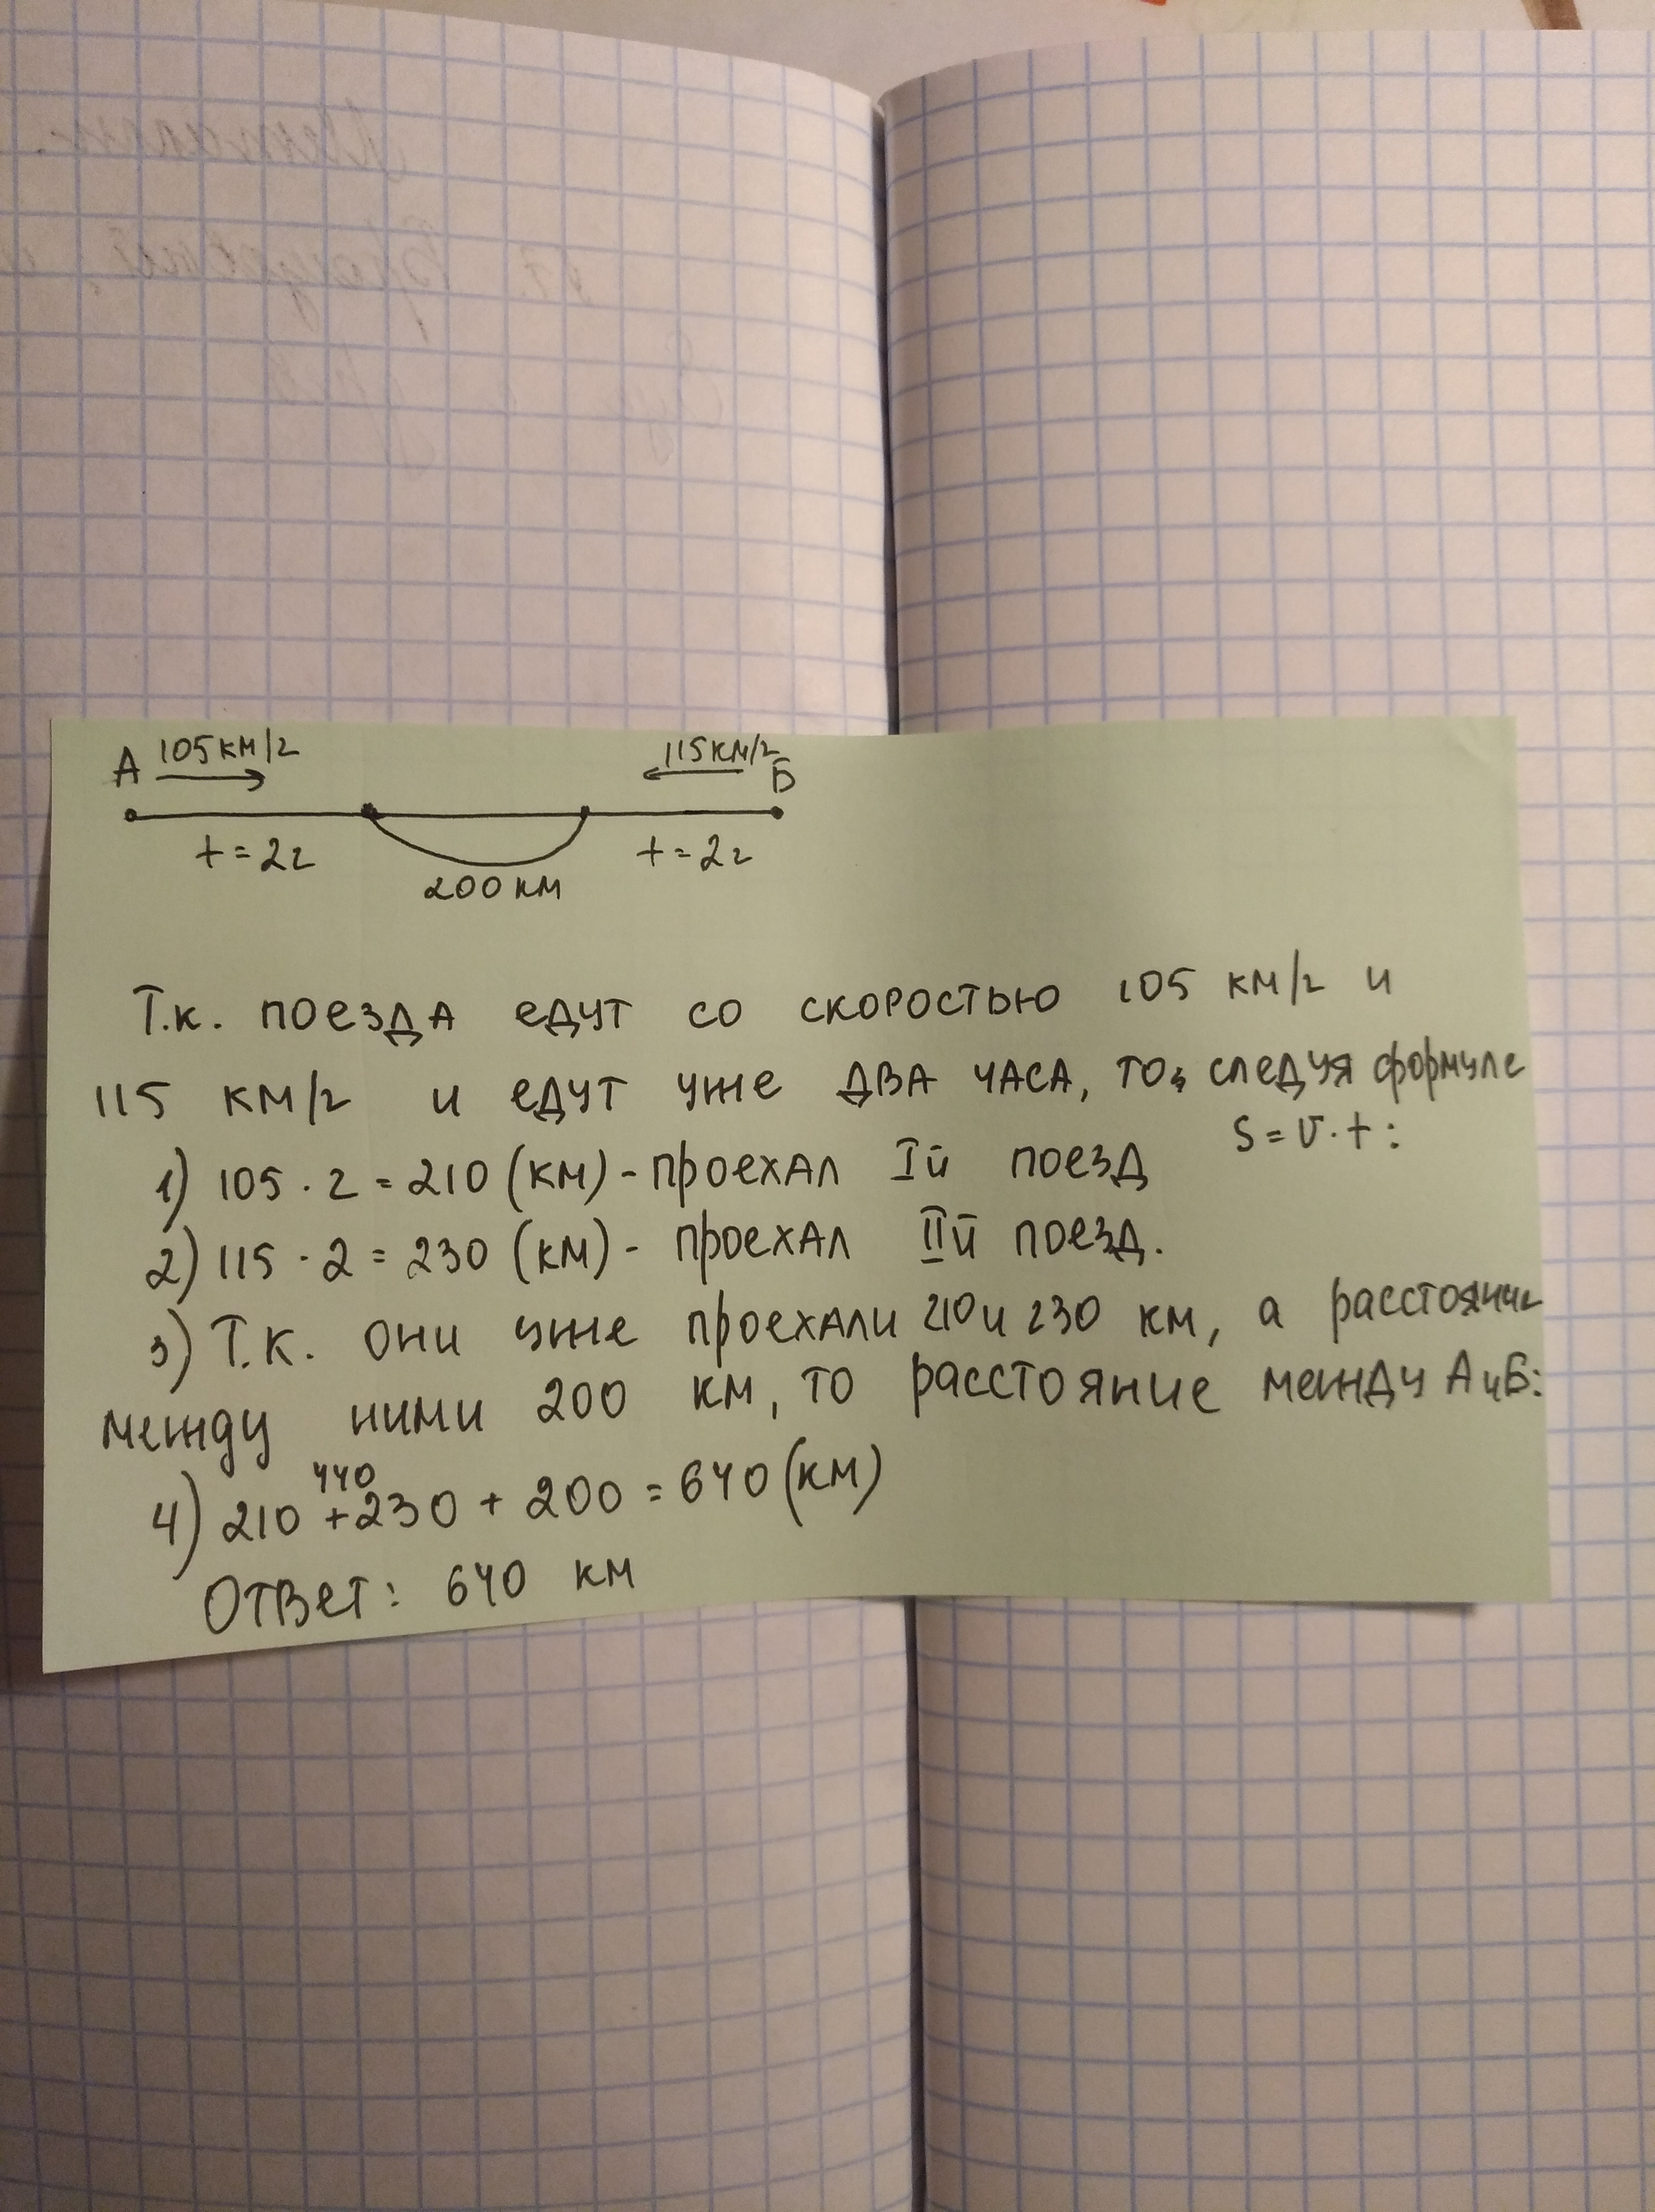 А 105 км/г 115 км/г Б
t = 2г 200 км t = 2г
Т.к. поезда едут со скоростью 105 км/г и
115 км/г и едут уже два часа, то, следуя формуле
S = v · t :
1) 105 · 2 = 210 (км) - проехал Iй поезд
2) 115 · 2 = 230 (км) - проехал IIй поезд.
3) Т.к. они уже проехали 210 и 230 км, а расстояние
между ними 200 км, то расстояние между А и Б:
440
4) 210 + 230 + 200 = 640 (км)
Ответ: 640 км